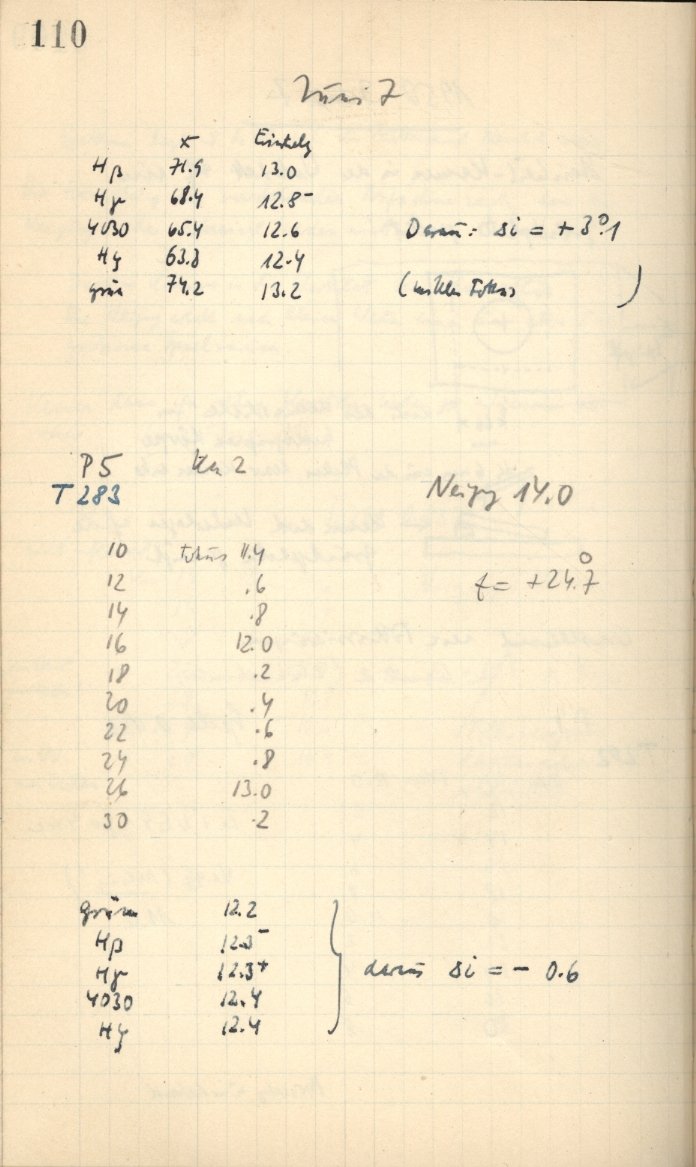 110
Juni 7
x Einstelg
Hβ 71.9 13.0
Hγ 68.4 12.8-
4030 65.4 12.6 Daraus: Δi = + 3°.1
Hζ 63.8 12.4
grün 74.2 13.2 ( Fokus )
P5 Ka 2
T 283 Neigg 14.0
10 Fokus 11.4
12 .6 t = +24°.7
14 .8
16 12.0
18 .2
20 .4
22 .6
24 .8
26 13.0
30 .2
grün 12.2
Hβ 12.3-
Hγ 12.3+ daraus Δi = - 0.6
4030 12.4
Hζ 12.4